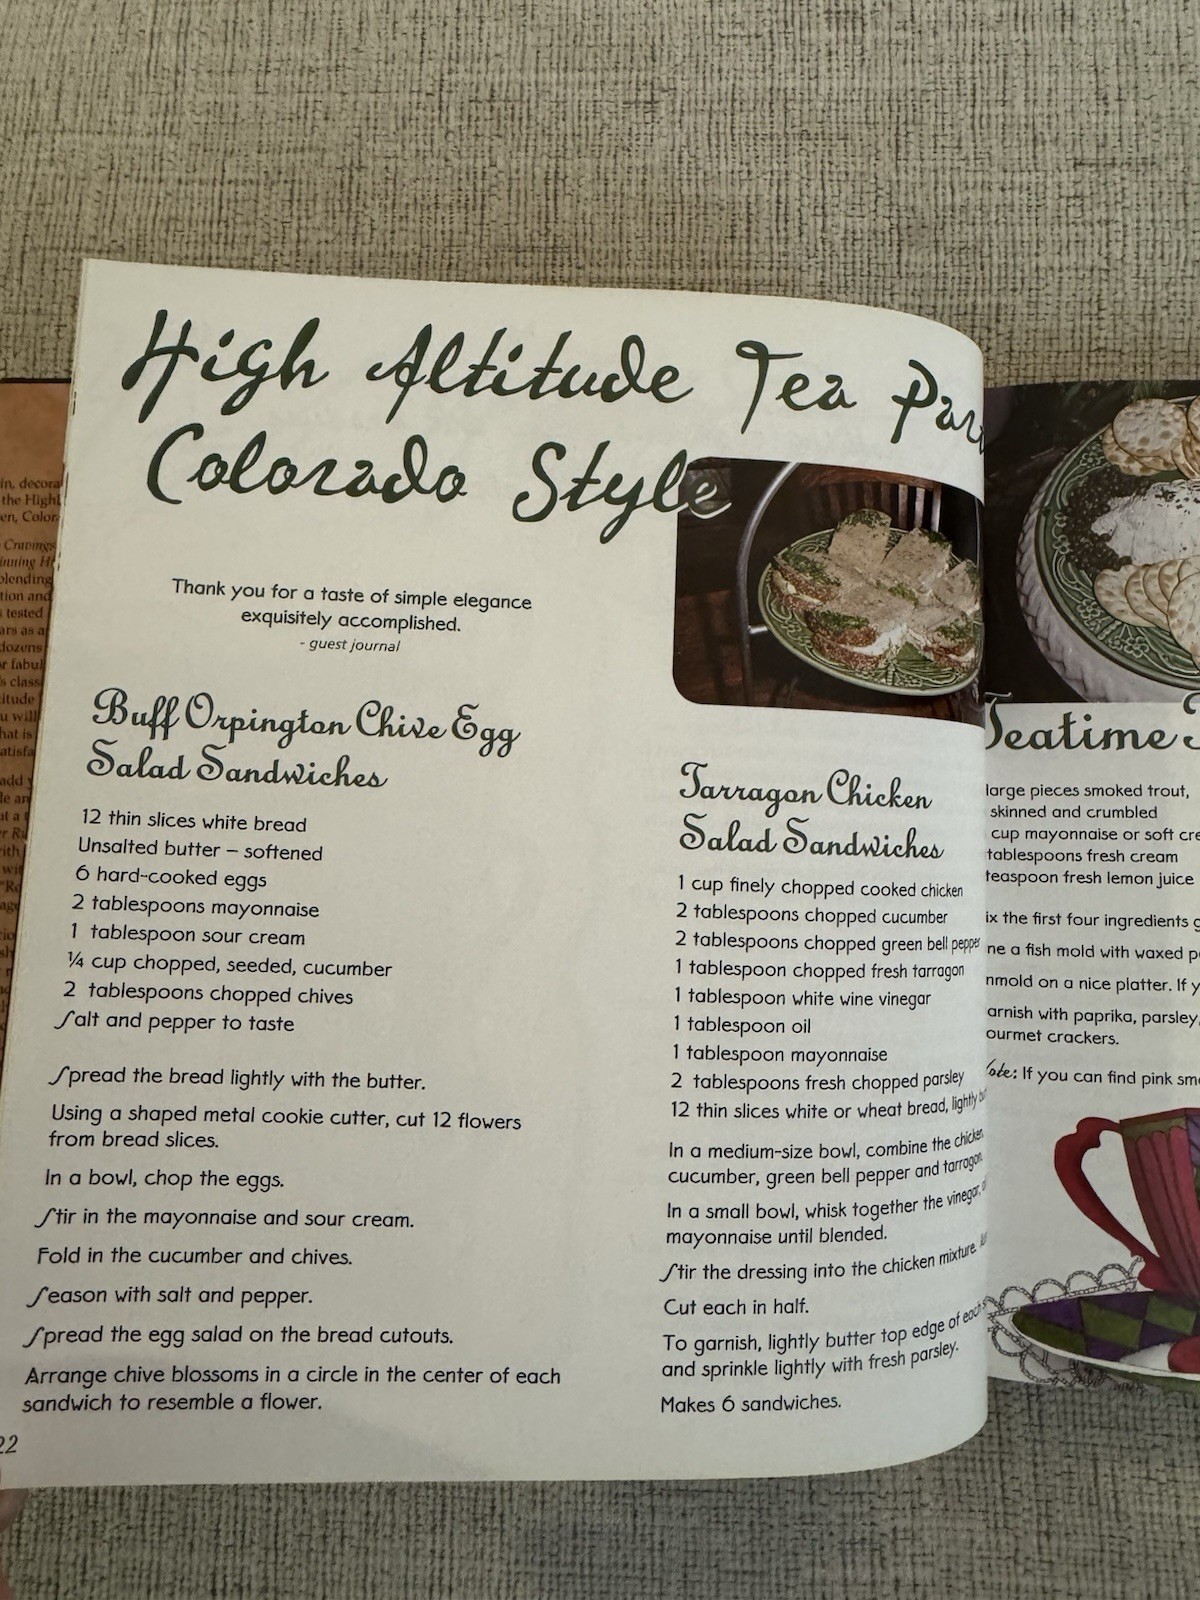 High Altitude Tea
Colorado Style
Thank you for a taste of simple elegance
exquisitely accomplished.
- guest journal
Buff Orpington Chive Egg
Salad Sandwiches
12 thin slices white bread
Unsalted butter – softened
6 hard-cooked eggs
2 tablespoons mayonnaise
1 tablespoon sour cream
¼ cup chopped, seeded, cucumber
2 tablespoons chopped chives
Salt and pepper to taste
Spread the bread lightly with the butter.
Using a shaped metal cookie cutter, cut 12 flowers
from bread slices.
In a bowl, chop the eggs.
Stir in the mayonnaise and sour cream.
Fold in the cucumber and chives.
Season with salt and pepper.
Spread the egg salad on the bread cutouts.
Arrange chive blossoms in a circle in the center of each
sandwich to resemble a flower.
22
Tarragon Chicken
Salad Sandwiches
1 cup finely chopped cooked chicken
2 tablespoons chopped cucumber
2 tablespoons chopped green bell pepper
1 tablespoon chopped fresh tarragon
1 tablespoon white wine vinegar
1 tablespoon oil
1 tablespoon mayonnaise
2 tablespoons fresh chopped parsley
12 thin slices white or wheat bread, lightly
In a medium-size bowl, combine the chicken,
cucumber, green bell pepper and tarragon.
In a small bowl, whisk together the vinegar,
mayonnaise until blended.
Stir the dressing into the chicken mixture.
Cut each in half.
To garnish, lightly butter top edge of each
and sprinkle lightly with fresh parsley.
Makes 6 sandwiches.
Teatime
large pieces smoked trout,
skinned and crumbled
cup mayonnaise or soft
tablespoons fresh cream
teaspoon fresh lemon juice
the first four ingredients
a fish mold with waxed
on a nice platter. If
with paprika, parsley,
crackers.
Note: If you can find pink